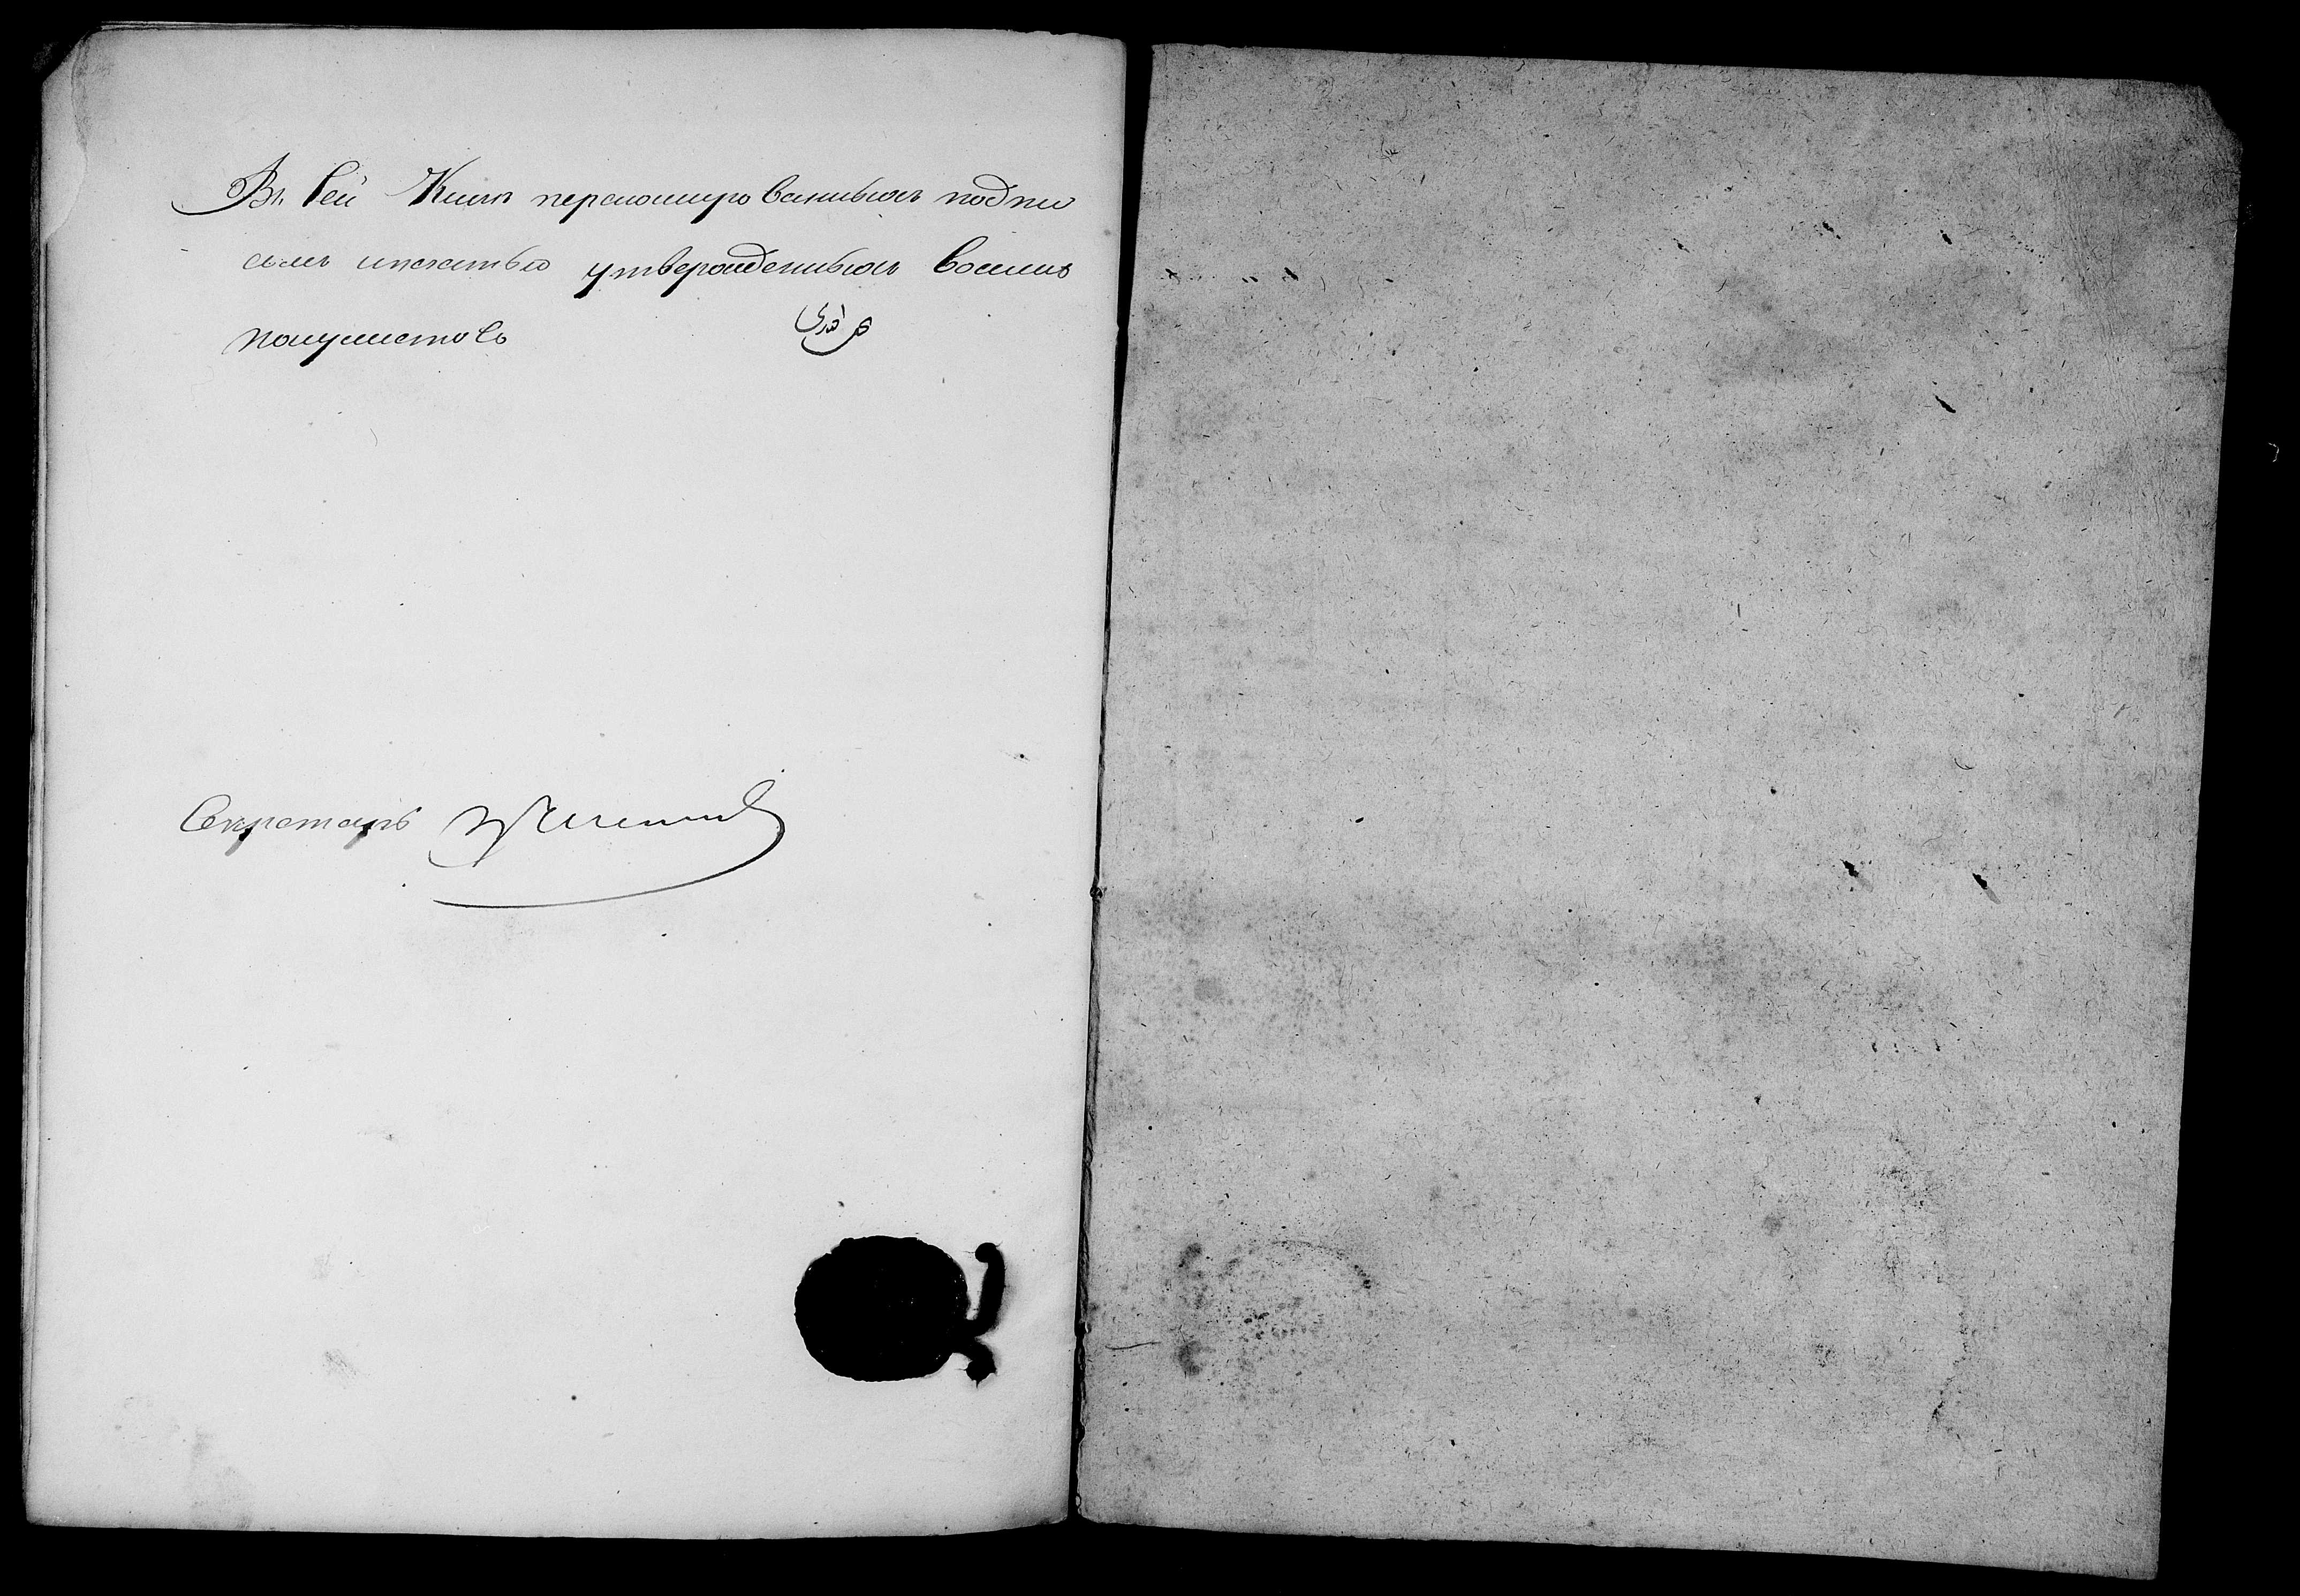 Въ сей Книгѣ перномированныхъ подпи
сомъ ипечатью утвержденныхъ восемь
полулистовъ
Секретарь